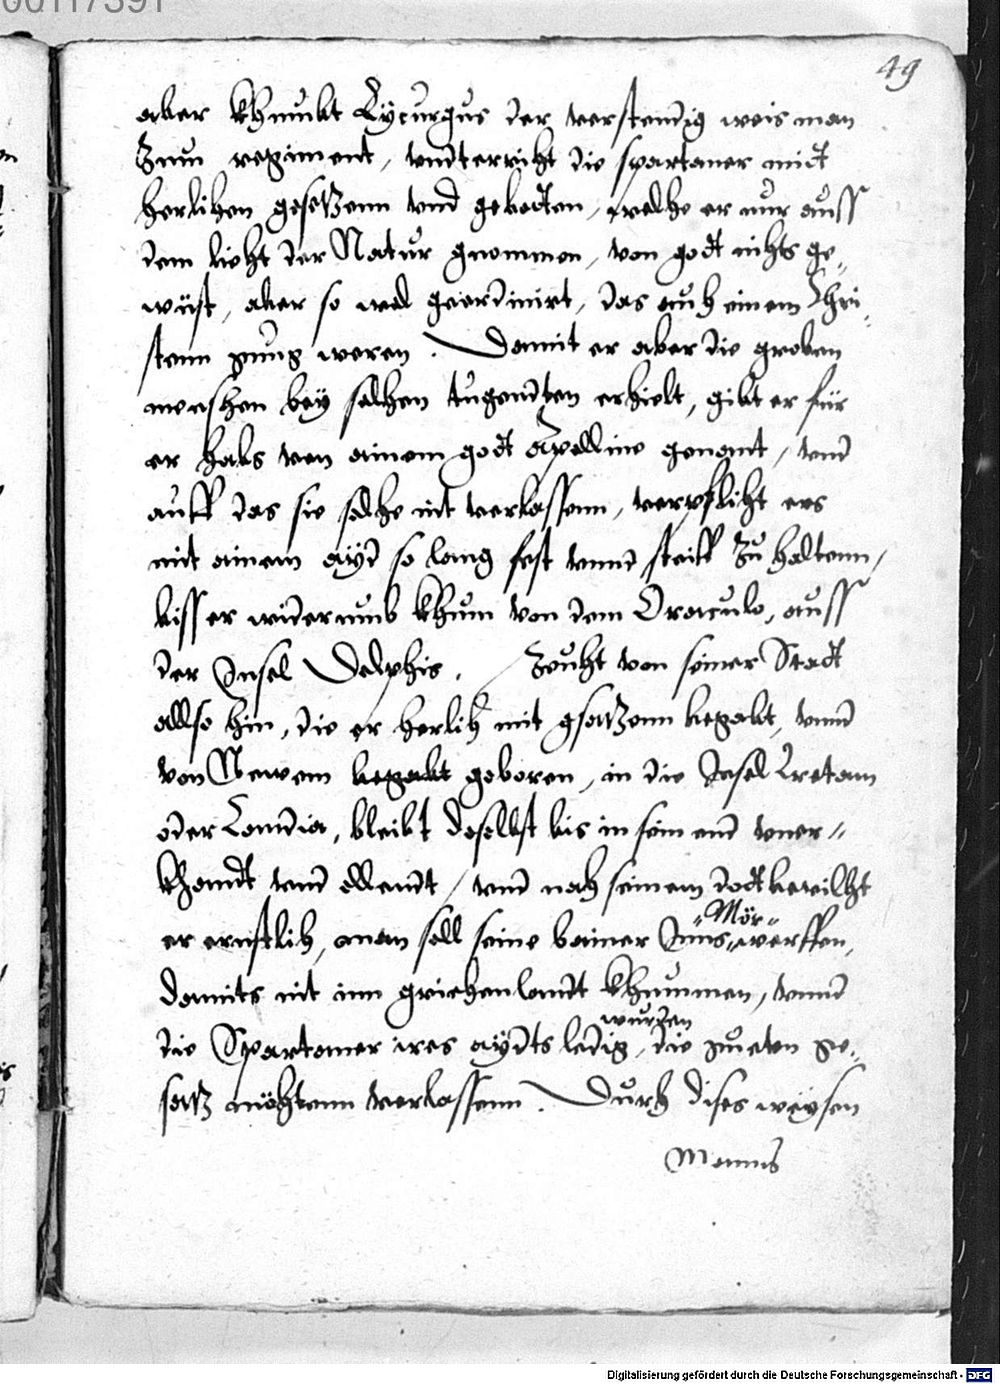 00117391
49
aber khumbt Lycurgus der verstendig weis man
Zum regiment, vndterricht die spartaner midt
herlichen gesetzenn vnd gebodten, welche er nur auss
dem liecht der Natur gnommen, von godt nichts ge„
wüst, aber so wol geordinirt, das auch einem Chri„
stenn gnug weren. Damit er aber die groben
menschen bey solchen tugendten erhielt, gibt er für
er habs von ainem godt Apolline genant, vnd
auff das sie solche nit verlassenn, verpflicht ers
mit ainem ayd so lang fest vnnd steiff zu haltenn,
biss er widerumb khum von dem Oraculo, auss
der Insel Delphis. Zeucht von seiner Stadt
allso hin, die er herlich mit gsatzenn begabt, vnnd
von Newem begabt geboren, in die Insel Cretam
oder Candia, bleibt doselbst bis in sein end vner„
khandt vnd ellendt, vnd nach seinem dodt bevilcht
er ernstlich, man soll seine bainer Inns „Mör„ werffen,
damits nit inn griechenlandt khummen, vnnd
die Spartaner ires aydts ledig wurden, die gueten ge„
satz möchtenn verlassenn. Durch dises weysen
Manns
Digitalisierung gefördert durch die Deutsche Forschungsgemeinschaft - DFG